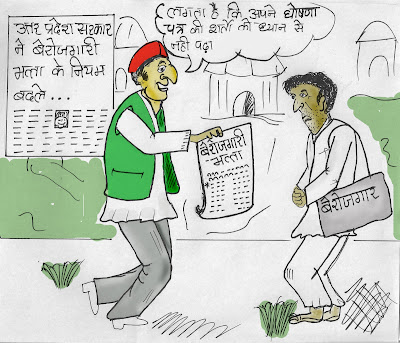 उत्तर प्रदेश सरकार
ने बेरोजगारी
भत्ता के नियम
बदले ...
लगता है कि अपने घोषणा
पत्र की शर्तों को ध्यान से
नहीं पढ़ा
बेरोजगारी
भत्ता
बेरोजगार